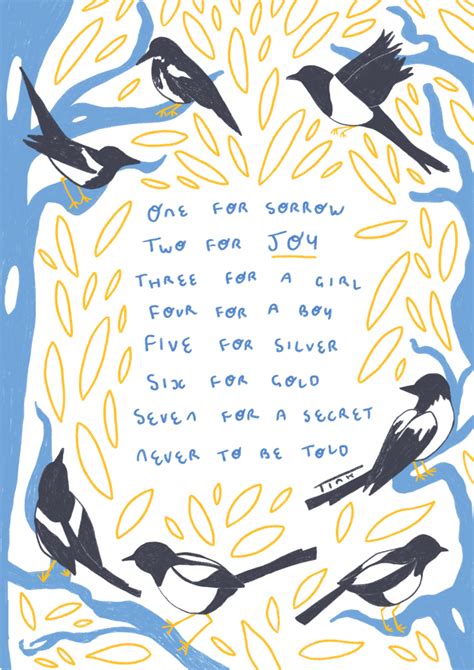 ONE FOR SORROW
TWO FOR JOY
THREE FOR A GIRL
FOUR FOR A BOY
FIVE FOR SILVER
SIX FOR GOLD
SEVEN FOR A SECRET
NEVER TO BE TOLD